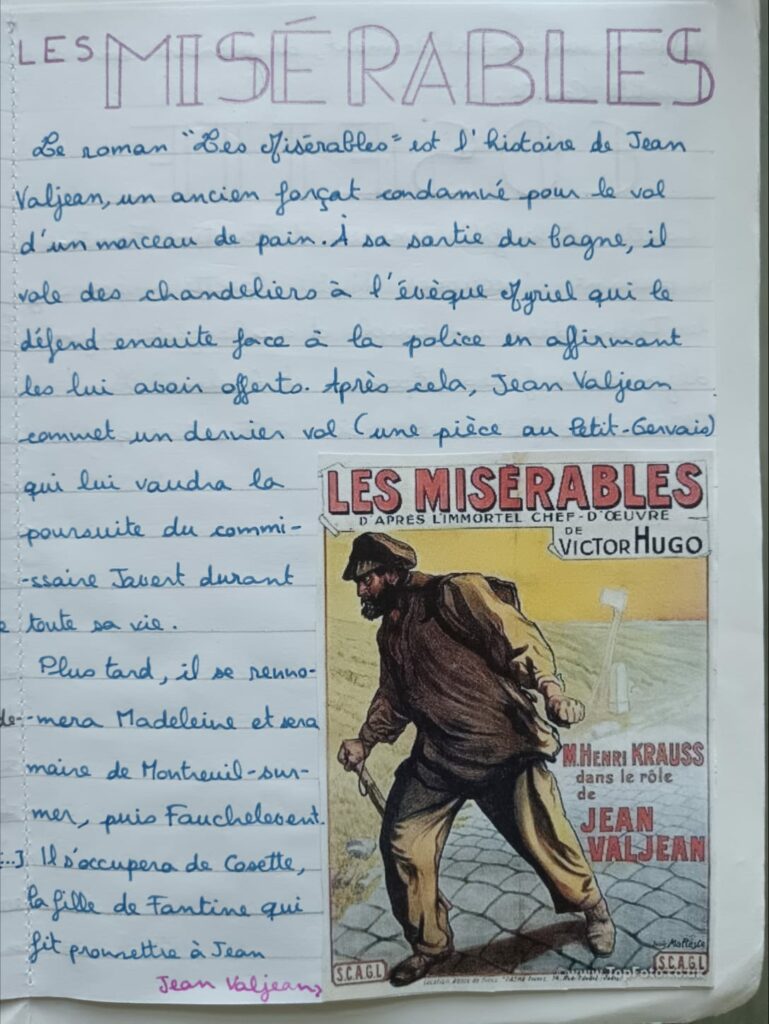 LES MISÉRABLES
Le roman "Les Misérables" est l'histoire de Jean
Valjean, un ancien forçat condamné pour le vol
d'un morceau de pain. À sa sortie du bagne, il
vole des chandeliers à l'évèque Myriel qui le
défend ensuite face à la police en affirmant
les lui avoir offerts. Après cela, Jean Valjean
commet un dernier vol (une pièce au Petit-Gervais)
qui lui vaudra la
poursuite du commi-
-ssaire Javert durant
toute sa vie.
Plus tard, il se renno-
-mera Madeleine et sera
maire de Montreuil-sur-
mer, puis Fauchelevent.
Il s'occupera de Cosette,
la fille de Fantine qui
fit promettre à Jean
Jean Valjean
LES MISÉRABLES
D'APRÈS L'IMMORTEL CHEF-D'ŒUVRE
DE
VICTOR HUGO
M. HENRI KRAUSS
dans le rôle
de
JEAN
VALJEAN
S.C.A.G.L
S.C.A.G.L
www.TopFoto.co.uk